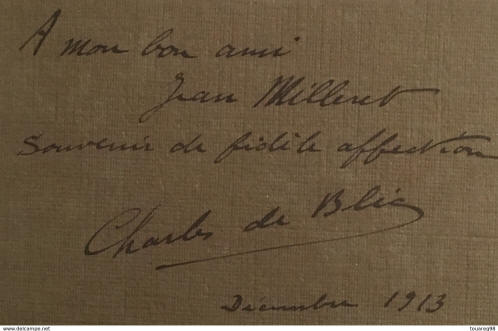 A mon bon ami
Jean Milleret
Souvenir de fidèle affection
Charles de Blic
Décembre 1913
www.delcampe.net
touareg98